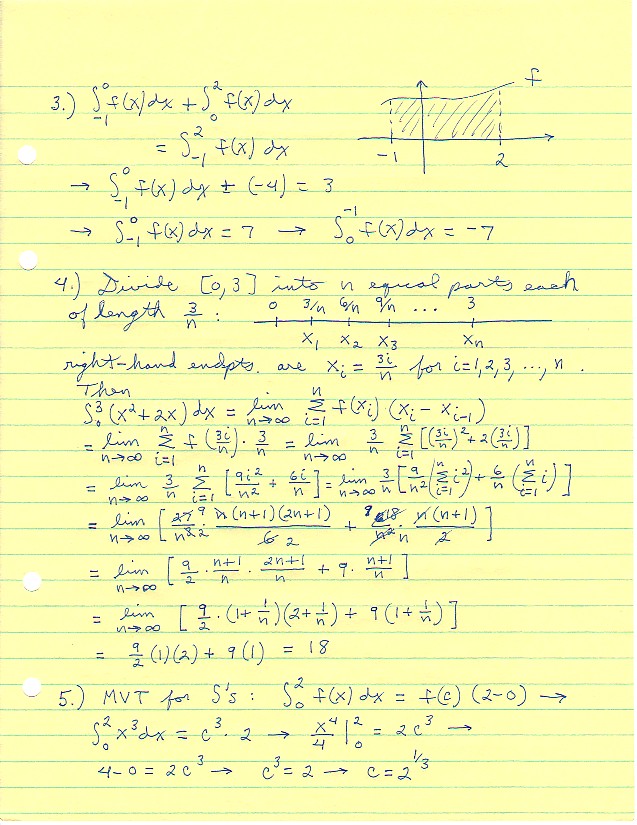 3.) ∫₋₁⁰ f(x) dx + ∫₀² f(x) dx
= ∫₋₁² f(x) dx
f
-1 2
→ ∫₋₁⁰ f(x) dx + (-4) = 3
→ ∫₋₁⁰ f(x) dx = 7 → ∫₀⁻¹ f(x) dx = -7
4.) Divide [0,3] into n equal parts each
of length 3/n : 0 3/n 6/n 9/n ... 3
x₁ x₂ x₃ xₙ
right-hand endpts. are xᵢ = 3i/n for i=1,2,3, ..., n.
Then
∫₀³ (x²+2x) dx = lim_{n→∞} Σ_{i=1}^{n} f(xᵢ) (xᵢ - xᵢ₋₁)
= lim_{n→∞} Σ_{i=1}^{n} f(3i/n) · 3/n = lim_{n→∞} 3/n Σ_{i=1}^{n} [(3i/n)² + 2(3i/n)]
= lim_{n→∞} 3/n Σ_{i=1}^{n} [9i²/n² + 6i/n] = lim_{n→∞} 3/n [9/n² (Σ_{i=1}^{n} i²) + 6/n (Σ_{i=1}^{n} i)]
= lim_{n→∞} [27 9/n³ 2 · n(n+1)(2n+1)/6 2 + 9 18/n² n · n(n+1)/2]
= lim_{n→∞} [9/2 · n+1/n · 2n+1/n + 9 · n+1/n]
= lim_{n→∞} [9/2 · (1+1/n)(2+1/n) + 9(1+1/n)]
= 9/2 (1)(2) + 9(1) = 18
5.) MVT for ∫'s : ∫₀² f(x) dx = f(c) (2-0) →
∫₀² x³ dx = c³ · 2 → x⁴/4 |₀² = 2c³ →
4-0 = 2c³ → c³ = 2 → c = 2^{1/3}